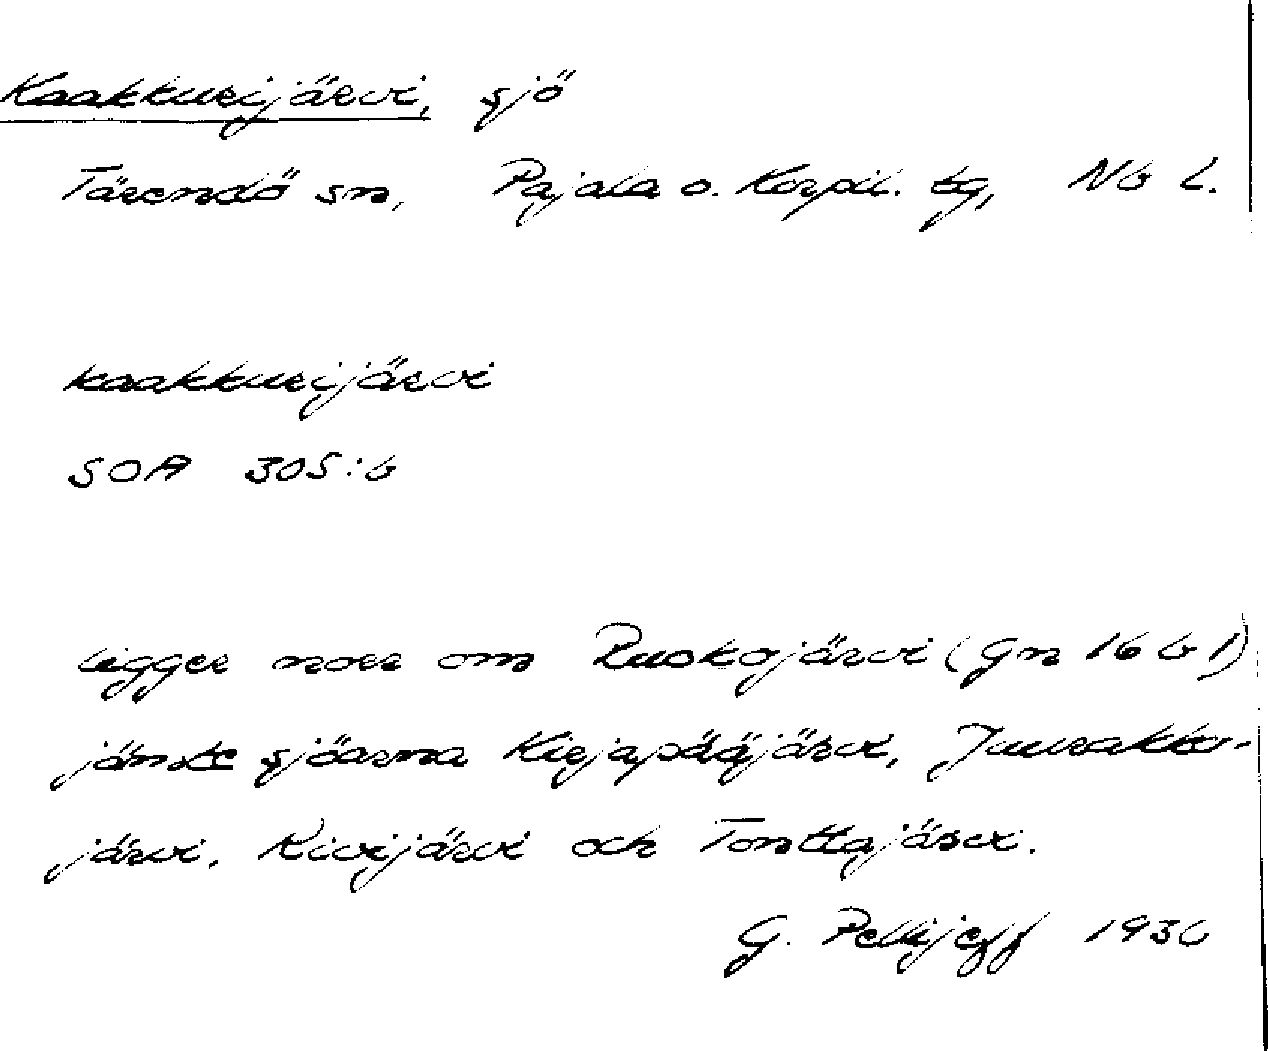 Kaakkurijärvi, sjö
Tärendö sn, Pajala o. Korpil. tg, Nb L.
kaakkurijärvi
SOA 305:6
ligger norr om Ruokojärvi (Gn 16 b 1)
jämte sjöarna Kirjapääjärvi, Juurakko-
järvi, Kivijärvi och Tonttajärvi.
G. Pellijeff 1936